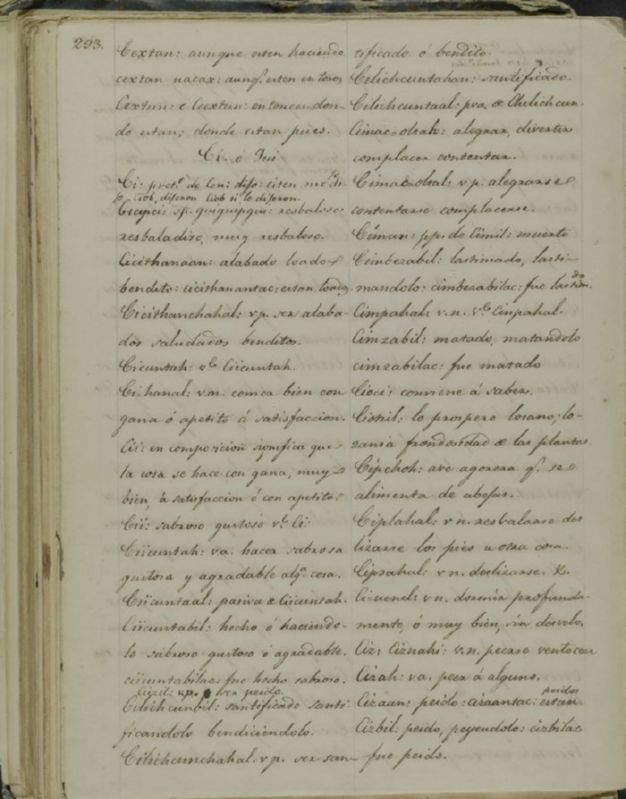 293.
Cextan: aunque esten haciendo
cextan uacax: aunq. esten en toros
Cextun: e Cextun: entonces don-
do estan; donde estan pues.
Ci. é
Ci: pret.º de cen: dije: citen
ciob, dijeron ciob si lo dijeron.
Cicipci: resbaloso
resbaladiso, muy resbaloso.
Cicithanaan: alabado loado
bendito: cicithanantac: estan loados
Cicithanchahal: v.p. ser alaba-
dos saludados benditos.
Cicuntah: v.e Ciicuntah.
Cihanal: v.n. comer bien con
gana ó apetito á satisfaccion.
Cii: en composicion significa que
la cosa se hace con gana, muy
bien, á satisfaccion ó con apetito.
Cii: sabroso gustoso v.e Ci.
Ciicuntah: v.a. hacer sabrosa
gustosa y agradable alg.ª cosa.
Ciicuntaal: pasiva de Ciicuntah.
Ciicuntabil: hecho ó haciendo-
lo sabroso gustoso ó agradable.
ciicuntabilac: fue hecho sabroso.
ser peido.
Cilichcunbil: santificado santi-
ficandolo bendiciendolo.
Cilichcunchahal. v.p. ser san-
tificado ó bendito.
Cilichcuntahan: santificado.
Cilichcuntaal: pva. de Cilichcun.
Cimac-olal: alegrar, divertir
complacer contentar.
Cimacolhal: v.p. alegrarse
contentarse complacerse.
Ciman: pp. de Cimil: muerto
Cimbezabil: lastimado, lasti-
mandolo: cimbezabilac: fue lastimdo.
Cimpahal: v.n. v.e Cinpahal.
Cimzabil: matado, matandolo
cimzabilac: fue matado
Cioci: conviene á saber.
lo prospero losano, lo-
zania frondosidad de las plantas.
Cipchoh: ave agorera q. se
alimenta de abejas.
Ciplahal: v.n. resbalarse des
lizarse los pies u otra cosa.
Ciprahal: v.n. deslizarse. &.
v.n. dormir profunda-
mente, ó muy bien, sin desvelo.
Ciz: Ciznahi: v.n. peerse ventosear
Cizah: v.a. peer á alguno.
peidos
Cizaan: peido: cizaantac: estan
Cizbil: peido, peyendolo: cizbilac
fue peido.